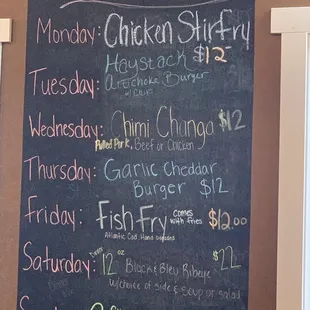 Monday: Chicken Stirfry
Haystack $12-
Tuesday: Artichoke Burger
Wednesday: Chimi Changa $12
Pulled Pork, Beef or Chicken
Thursday: Garlic Cheddar
Burger $12
Friday: Fish Fry comes with fries $12.00
Atlantic Cod, Hand
Saturday: 12 oz Black & Bleu Ribeye $22
w/choice of side & soup or salad